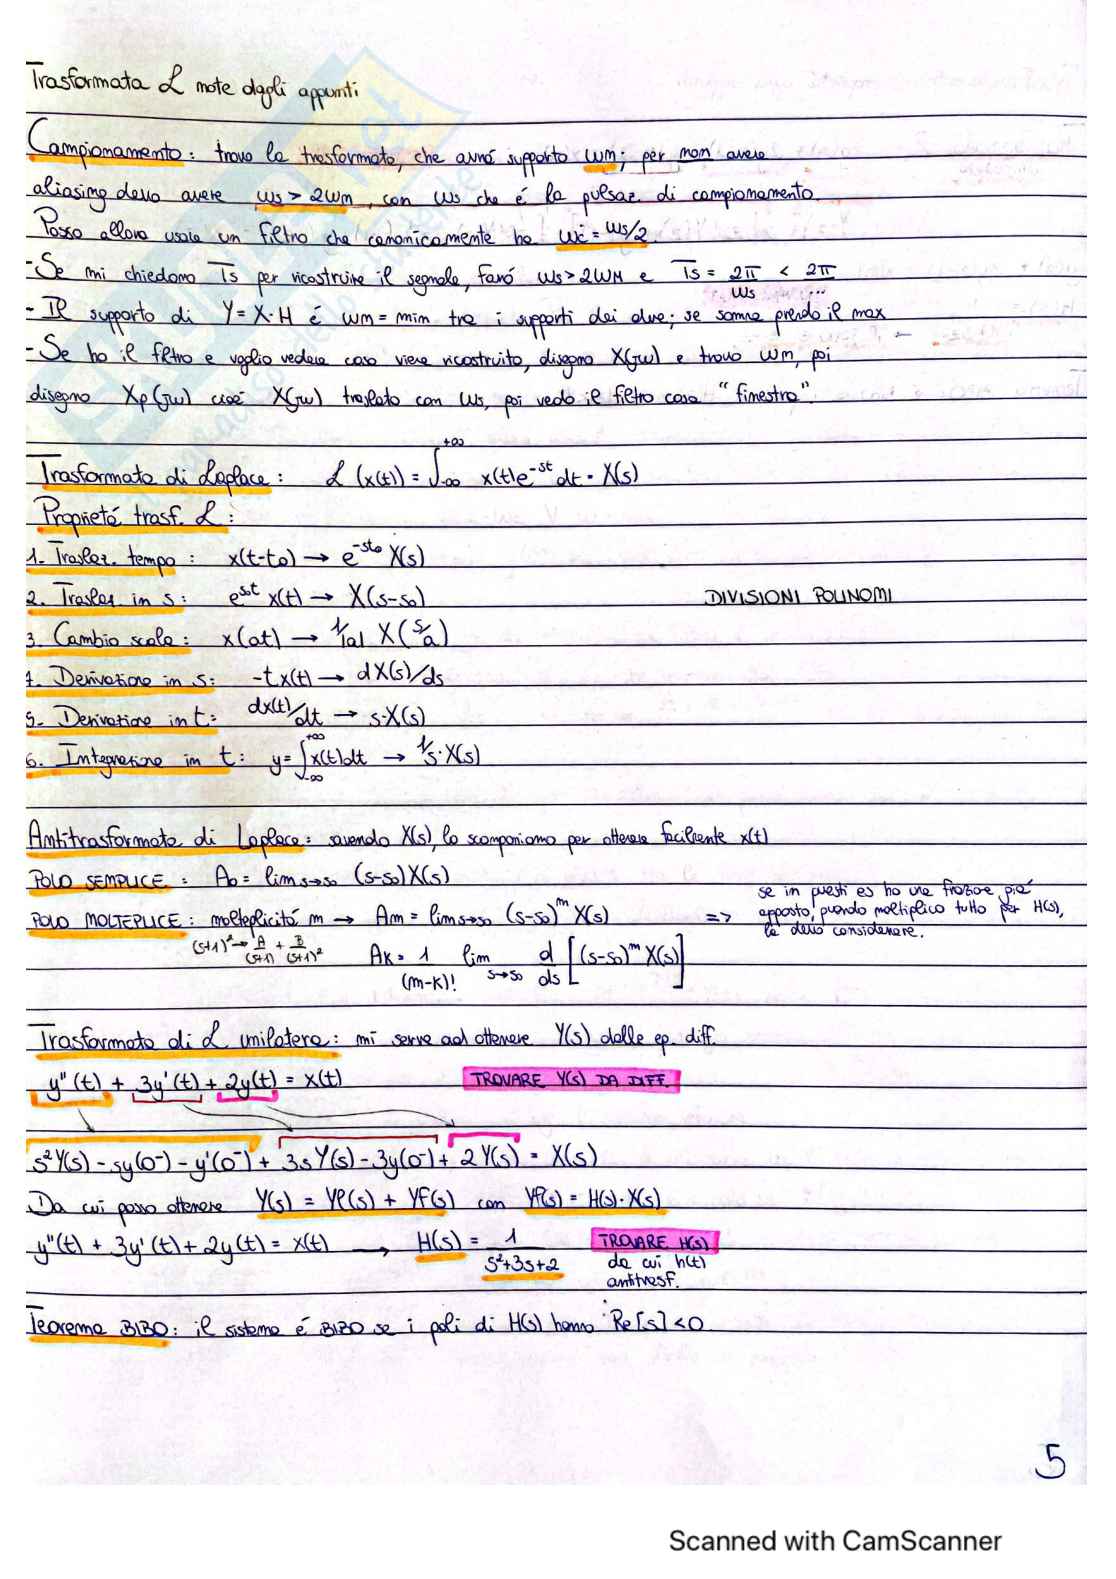 Trasformata L note dagli appunti
Campionamento: trovo la trasformata, che avrá supporto ωm; per non avere
aliasing devo avere ωs > 2ωm, con ωs che é la pulsaz. di campionamento.
Posso allora usare un filtro che canonicamente ha ωc = ωs/2
- Se mi chiedono Ts per ricostruire il segnale, faró ωs > 2ωM e Ts = 2π/ωs < 2π/...
- Il supporto di Y = X·H é ωm = min tra i supporti dei due; se somma prendo il max
- Se ho il filtro e voglio vedere cosa viene ricostruito, disegno X(jω) e trovo ωm, poi
disegno Xp(jω) cioé X(jω) traslato con ωs, poi vedo il filtro cosa "finestra"
Trasformata di Laplace: L (x(t)) = ∫-∞+∞ x(t)e^-st dt = X(s)
Proprietá trasf. L:
1. Traslaz. tempo: x(t-to) → e^-sto X(s)
2. Traslaz in s: e^sot x(t) → X(s-so) DIVISIONI POLINOMI
3. Cambio scala: x(at) → 1/|a| X(s/a)
4. Derivazione in s: -tx(t) → dX(s)/ds
5. Derivazione in t: dx(t)/dt → s·X(s)
6. Integrazione in t: y = ∫-∞+∞ x(t)dt → 1/s·X(s)
Antitrasformata di Laplace: avendo X(s), lo scomponiamo per ottenere facilmente x(t)
POLO SEMPLICE: Ao = lim s→so (s-so)X(s)
POLO MOLTEPLICE: molteplicitá m → Am = lim s→so (s-so)^m X(s) => se in questi es ho una frazione giá
apposto, quando moltiplico tutto per H(s),
la devo considerare.
(s+1)² → A/(s+1) + B/(s+1)² Ak = 1/(m-k)! lim s→so d/ds [(s-so)^m X(s)]
Trasformata di L unilatera: mi serve ad ottenere Y(s) dalle eq. diff.
y''(t) + 3y'(t) + 2y(t) = x(t) TROVARE Y(s) DA DIFF.
s²Y(s) - sy(0⁻) - y'(0⁻) + 3sY(s) - 3y(0⁻) + 2Y(s) = X(s)
Da cui posso ottenere Y(s) = Yl(s) + YF(s) con YF(s) = H(s)·X(s)
y''(t) + 3y'(t) + 2y(t) = x(t) → H(s) = 1/s²+3s+2 TROVARE H(s)
da cui h(t)
antitrasf.
Teorema BIBO: il sistema é BIBO se i poli di H(s) hanno Re[s]<0
5
Scanned with CamScanner